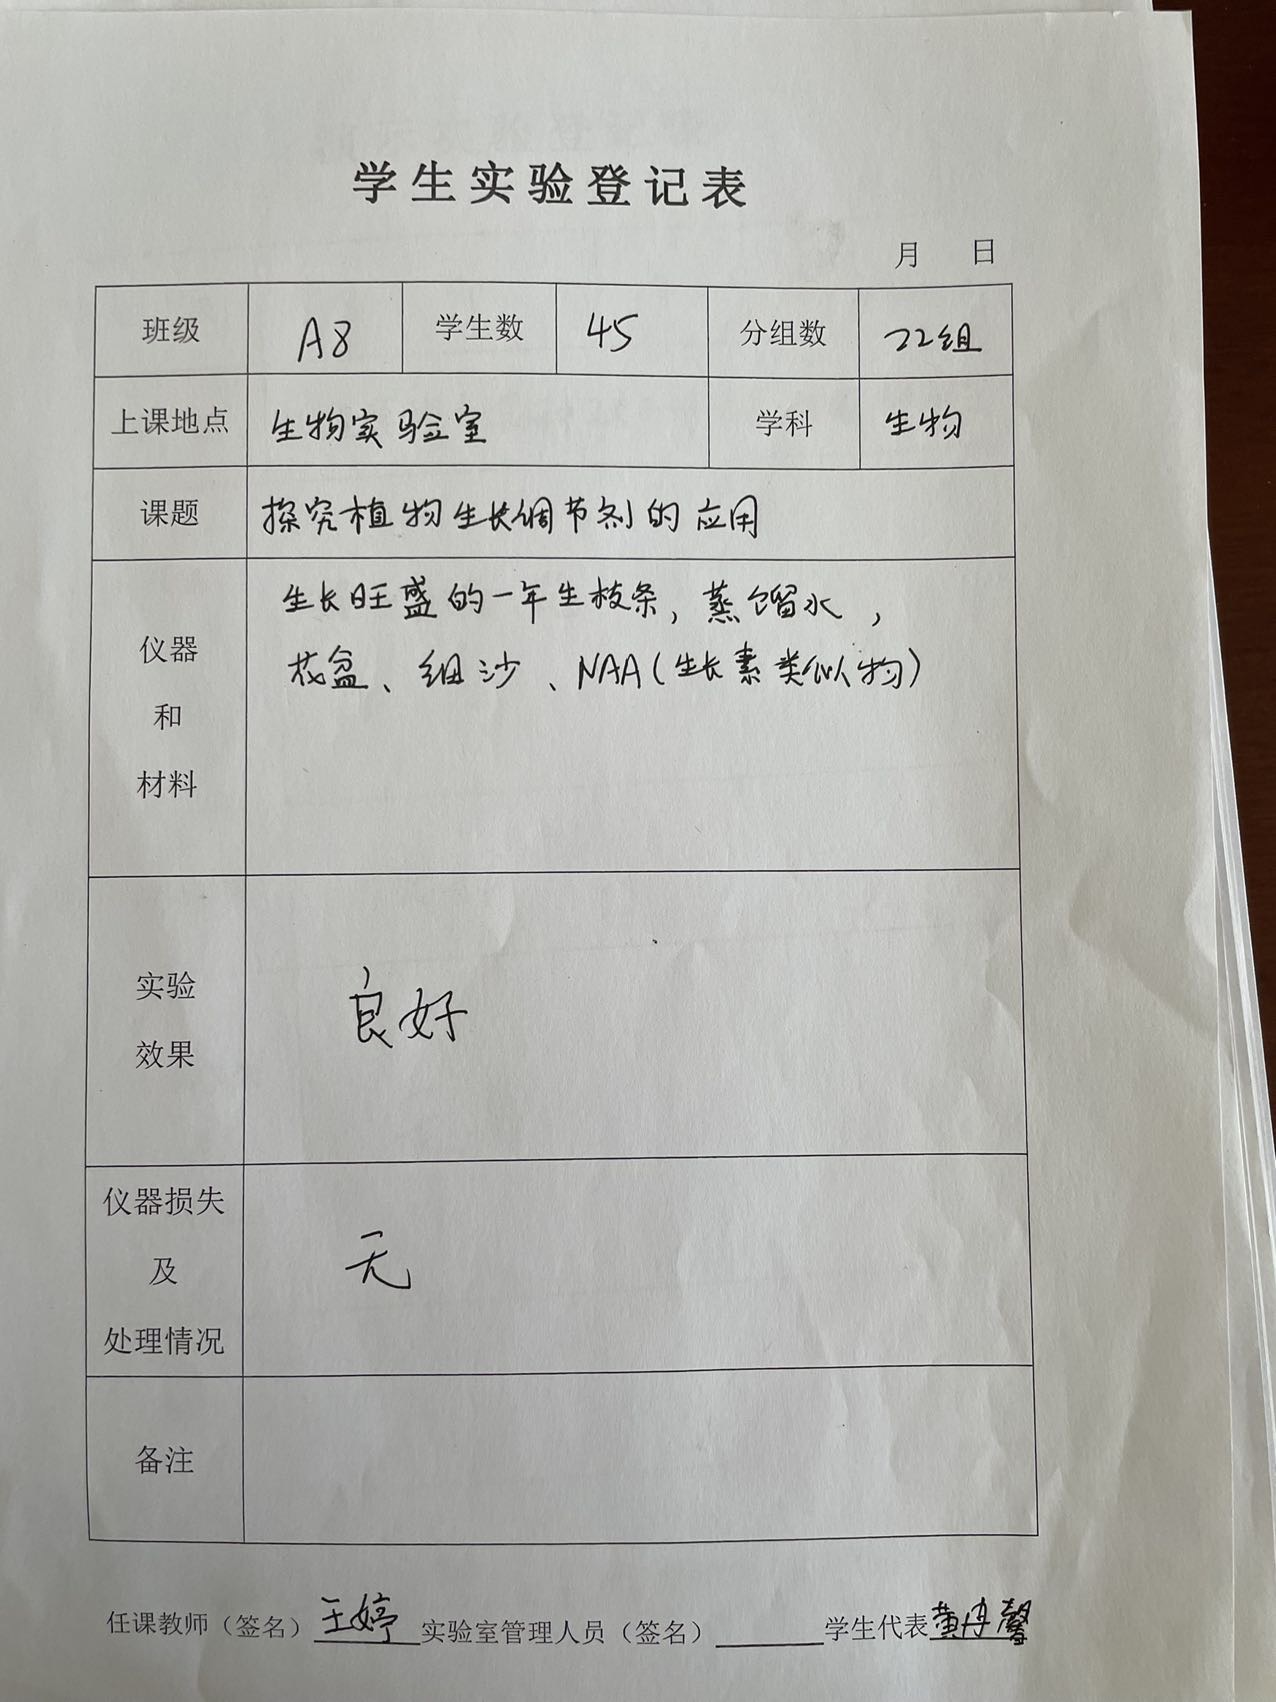 学生实验登记表
月 日
班级 A8 学生数 45 分组数 22组
上课地点 生物实验室 学科 生物
课题 探究植物生长调节剂的应用
仪器
和
材料
生长旺盛的一年生枝条，蒸馏水，
花盆、细沙、NAA（生长素类似物）
实验
效果
良好
仪器损失
及
处理情况
无
备注
任课教师（签名）王婷 实验室管理人员（签名） 学生代表黄丹馨